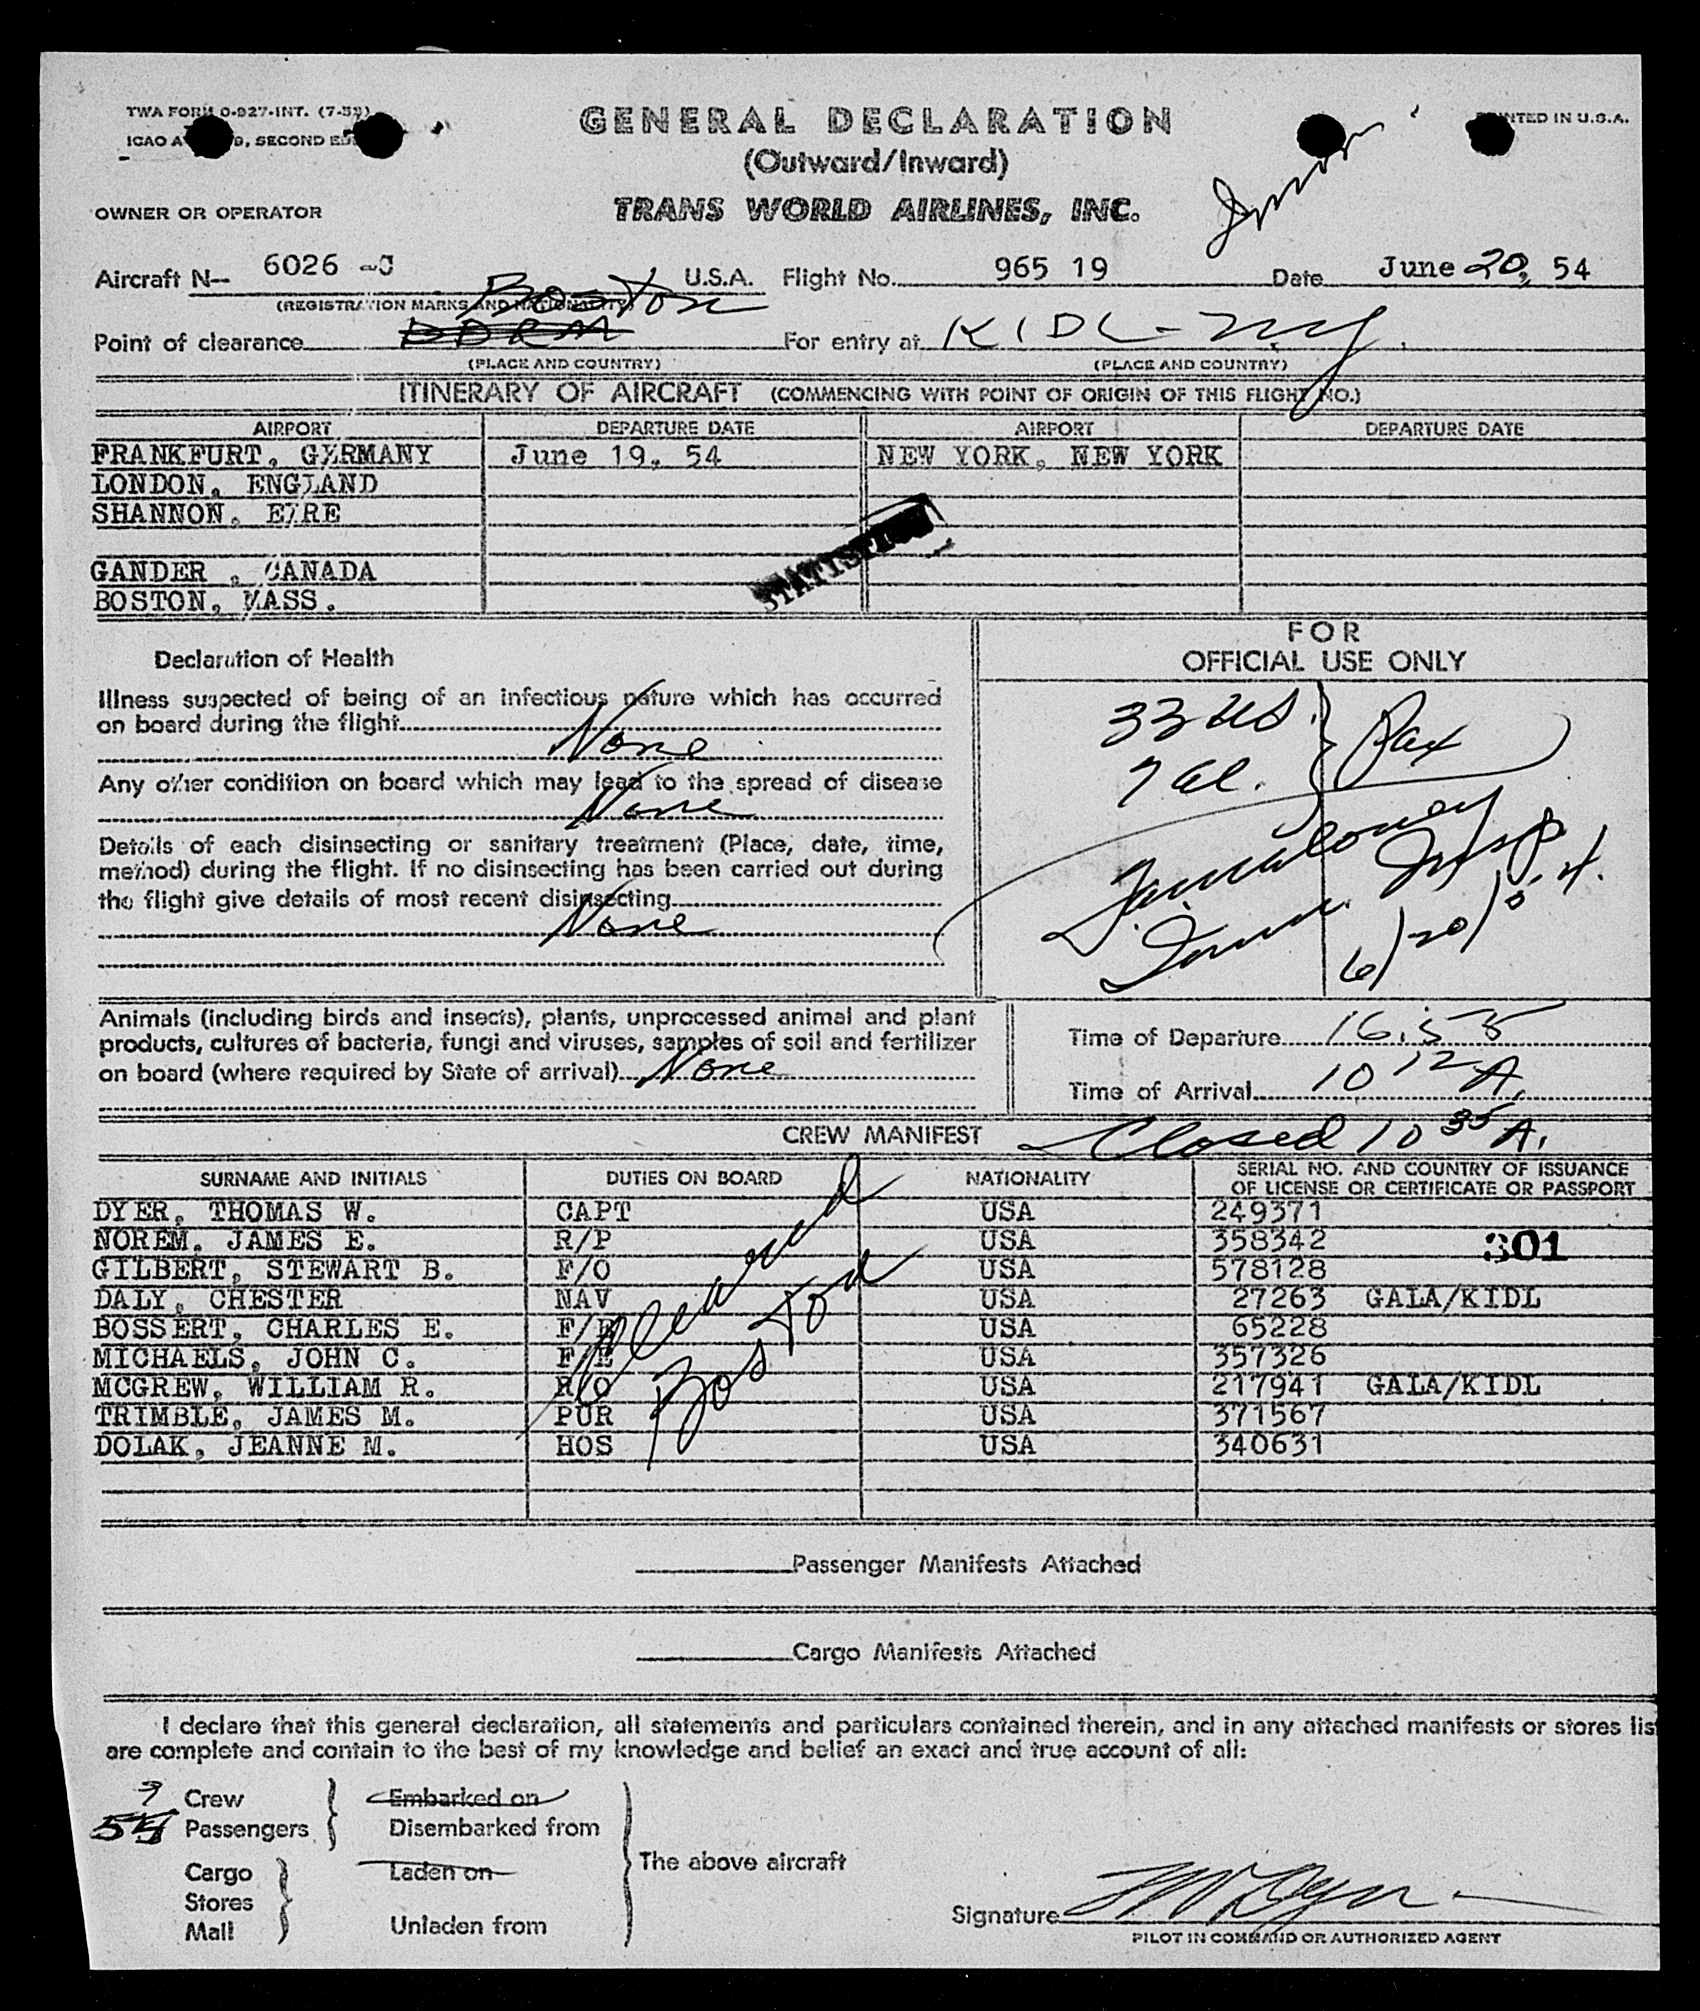 TWA FORM 0-927-INT. (7-53)
ICAO SECOND
PRINTED IN U.S.A.
GENERAL DECLARATION
(Outward/Inward)
OWNER OR OPERATOR TRANS WORLD AIRLINES, INC.
Aircraft N-- 6026 -C U.S.A. Flight No. 965 19 Date June 20, 54
(REGISTRATION MARKS AND NATIONALITY)
Boston
Point of clearance For entry at KIDL - N.Y.
(PLACE AND COUNTRY) (PLACE AND COUNTRY)
ITINERARY OF AIRCRAFT (COMMENCING WITH POINT OF ORIGIN OF THIS FLIGHT NO.)
AIRPORT DEPARTURE DATE AIRPORT DEPARTURE DATE
FRANKFURT, GERMANY June 19, 54 NEW YORK, NEW YORK
LONDON, ENGLAND
SHANNON, EIRE
STATISTICS
GANDER , CANADA
BOSTON, MASS.
Declaration of Health
Illness suspected of being of an infectious nature which has occurred
on board during the flight
None
Any other condition on board which may lead to the spread of disease
None
Details of each disinsecting or sanitary treatment (Place, date, time,
method) during the flight. If no disinsecting has been carried out during
the flight give details of most recent disinsecting
None
FOR
OFFICIAL USE ONLY
33 US.
Pax
7 al.
Imm. Insp.
6/20/54.
Animals (including birds and insects), plants, unprocessed animal and plant
products, cultures of bacteria, fungi and viruses, samples of soil and fertilizer
on board (where required by State of arrival) None
Time of Departure 16:55
Time of Arrival 10 12 A.
CREW MANIFEST Closed 10 35 A.
SURNAME AND INITIALS DUTIES ON BOARD NATIONALITY SERIAL NO. AND COUNTRY OF ISSUANCE
OF LICENSE OR CERTIFICATE OR PASSPORT
DYER, THOMAS W. CAPT USA 249371
NOREM, JAMES E. R/P USA 358342 301
GILBERT, STEWART B. F/O USA 578128
DALY, CHESTER NAV USA 27263 GALA/KIDL
BOSSERT, CHARLES E. F/E USA 65228
MICHAELS, JOHN C. F/E USA 357326
MCGREW, WILLIAM R. R/O USA 217941 GALA/KIDL
TRIMBLE, JAMES M. PUR USA 371567
DOLAK, JEANNE M. HOS USA 340631
Cleared
Boston
Passenger Manifests Attached
Cargo Manifests Attached
I declare that this general declaration, all statements and particulars contained therein, and in any attached manifests or stores lis
are complete and contain to the best of my knowledge and belief an exact and true account of all:
9 Crew Embarked on
Passengers Disembarked from
The above aircraft
Cargo Laden on
Stores
Mail Unladen from
Signature T W Dyer
PILOT IN COMMAND OR AUTHORIZED AGENT